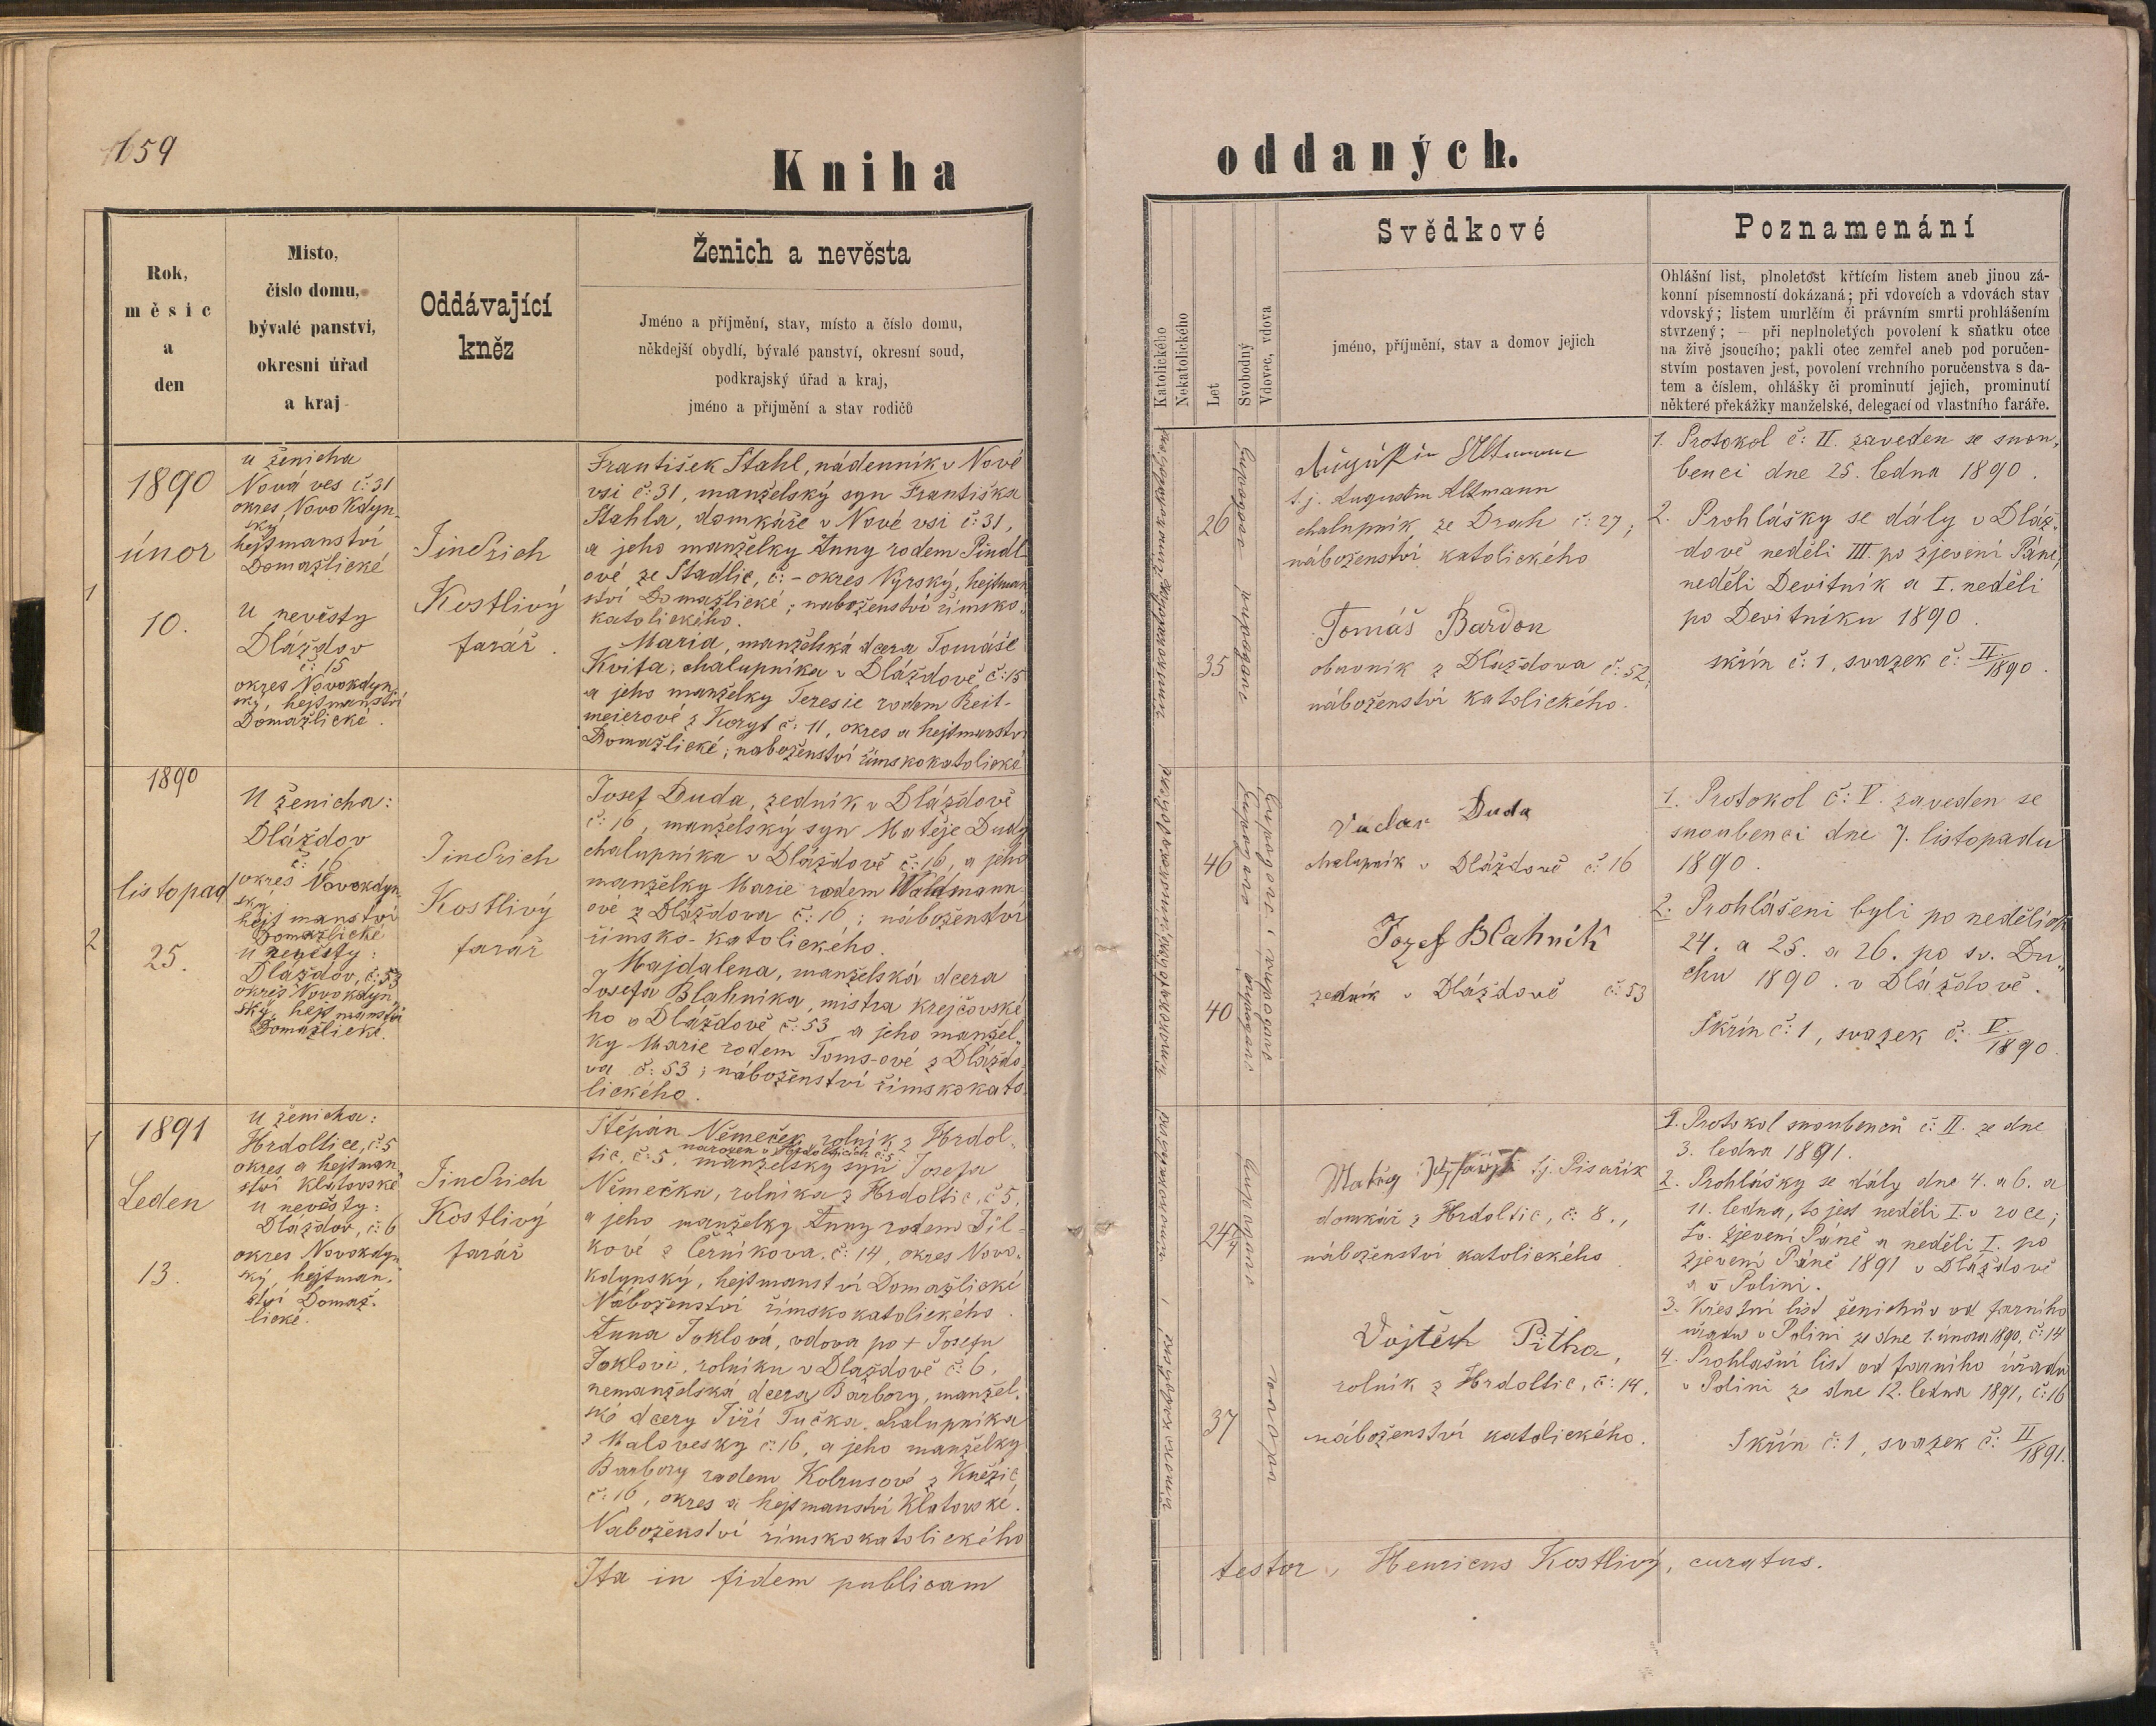 159
Kniha
oddaných.
Rok,
měsíc
a
den
Místo,
číslo domu,
bývalé panství,
okresní úřad
a kraj
Oddávající
kněz
Ženich a nevěsta
Jméno a příjmění, stav, místo a číslo domu,
někdejší obydlí, bývalé panství, okresní soud,
podkrajský úřad a kraj,
jméno a příjmění a stav rodičů
Katolického
Nekatolického
Let
Svobodný
Vdovec, vdova
Svědkové
jméno, příjmění, stav a domov jejich
Poznamenání
Ohlášní list, plnoletost křtícím listem aneb jinou zá-
konní písemností dokázaná; při vdovcích a vdovách stav
vdovský; listem umrlčím či právním smrti prohlášením
stvrzený; — při neplnoletých povolení k sňatku otce
na živě jsoucího; pakli otec zemřel aneb pod poručen-
stvím postaven jest, povolení vrchního poručenstva s da-
tem a číslem, ohlášky či prominutí jejich, prominutí
některé překážky manželské, delegací od vlastního faráře.
1
1890
únor
10.
u ženicha
Nová ves č: 31
okres Novo Kdyn-
ský
hejtmanství
Domažlické
u nevěsty
Dláždov
č: 15
okres Novokdyn
ský, hejtmanství
Domažlické.
Jindřich
Kostlivý
farář.
František Stahl, nádenník v Nové
vsi č: 31, manželský syn Františka
Stahla, domkáře v Nové vsi č: 31,
a jeho manželky Anny rodem Pindl
ové ze Stadlic, č: - okres Nýrský, hejtman
ství Domažlické; naboženství římsko-
katolického.
Maria, manželská dcera Tomáše
Kvita, chalupníka v Dláždově č: 15
a jeho manželky Teresie rodem Reit-
meierové z Koryt č: 11, okres a hejtmanství
Domažlické; naboženství římskokatolické
26
35
t. j. Augustin Altmann
chalupník ze Drah č: 27;
náboženství katolického
Tomáš Bardon
obuvník z Dláždova č: 52,
náboženství katolického.
1. Protokol č: II. zaveden se snou-
benci dne 25. ledna 1890.
2. Prohlášky se dály v Dláž-
dově neděli III. po zjevení Páně,
neděli Devitník a I. neděli
po Devitníku 1890.
skřín č: 1, svazek č: II./1890.
2
1890
listopad
25.
U ženicha:
Dláždov
č: 16
okres Novokdyn
ský
hejtmanství
Domažlické
u nevěsty:
Dláždov, č: 53
okres Novokdyn
ský, hejtmanství
Domažlické.
Jindřich
Kostlivý
farář
Josef Duda, zedník v Dláždově
č: 16, manželský syn Matěje Dudy
chalupníka v Dláždově č: 16, a jeho
manželky Marie rodem Waldmann-
ové z Dláždova č: 16; náboženství
římsko-katolického.
Majdalena, manželská dcera
Josefa Blahníka, mistra krejčovské
ho v Dláždově č: 53 a jeho manžel-
ky Marie rodem Toms-ové z Dláždo
va č: 53; náboženství římskokato
lického.
46
40
Duda
chalupník v Dláždově č: 16
Jozef Blahník
zedník v Dláždově č: 53
1. Protokol č: V. zaveden se
snoubenci dne 7. listopadu
1890.
2. Prohlášeni byli po nedělích
24. a 25. a 26. po sv. Du-
chu 1890. v Dláždově.
Skřín č: 1, svazek č: V./1890.
1
1891
Leden
13.
u ženicha:
Hrdoltice, č: 5
okres a hejtman
ství Klatovské
u nevěsty:
Dláždov, č: 6
okres Novokdyn
ský, hejtman-
ství Domaž-
lické.
Jindřich
Kostlivý
farář
Štěpán Němeček, rolník z Hrdol-
narozen v Hrdolticích č: 5
tic, č: 5, manželský syn Josefa
Němečka, rolníka z Hrdoltic, č: 5,
a jeho manželky Anny rodem Jíl-
kové z Černíkova, č: 14, okres Novo-
kdynský, hejtmanství Domažlické
Náboženství římskokatolického.
Anna Joklová, vdova po + Josefu
Joklovi, rolníku v Dlaždově č: 6,
nemanželská dcera Barbory, manžel-
ské dcery Jiří Tučka, chalupníka
z Malovesky č: 16, a jeho manželky
Barbory rodem Kolrusové z Kněžic
č: 16, okres a hejtmanství Klatovské.
Naboženství římskokatolického
24
37
tj. Pisařík
domkář z Hrdoltic, č: 8.,
náboženství katolického
Vojtěch Pitha,
rolník z Hrdoltic, č: 14,
náboženství katolického.
1. Protokol snoubenců č: II. ze dne
3. ledna 1891.
2. Prohlášky se dály dne 4. a 6. a
11. ledna, to jest neděli I. v roce;
sv. Zjevení Páně a neděli I. po
Zjevení Páně 1891 v Dláždově
a v Polini.
3. Křestní list ženichův od farního
úřadu v Polini ze dne 1. února 1890, č: 14
4. Prohlašní list od farního úřadu
v Polini ze dne 12. ledna 1891, č: 16
Skřín č: 1, svazek č: II/1891.
Ita in fidem publicam
testor Henricus Kostlivý, curatus.